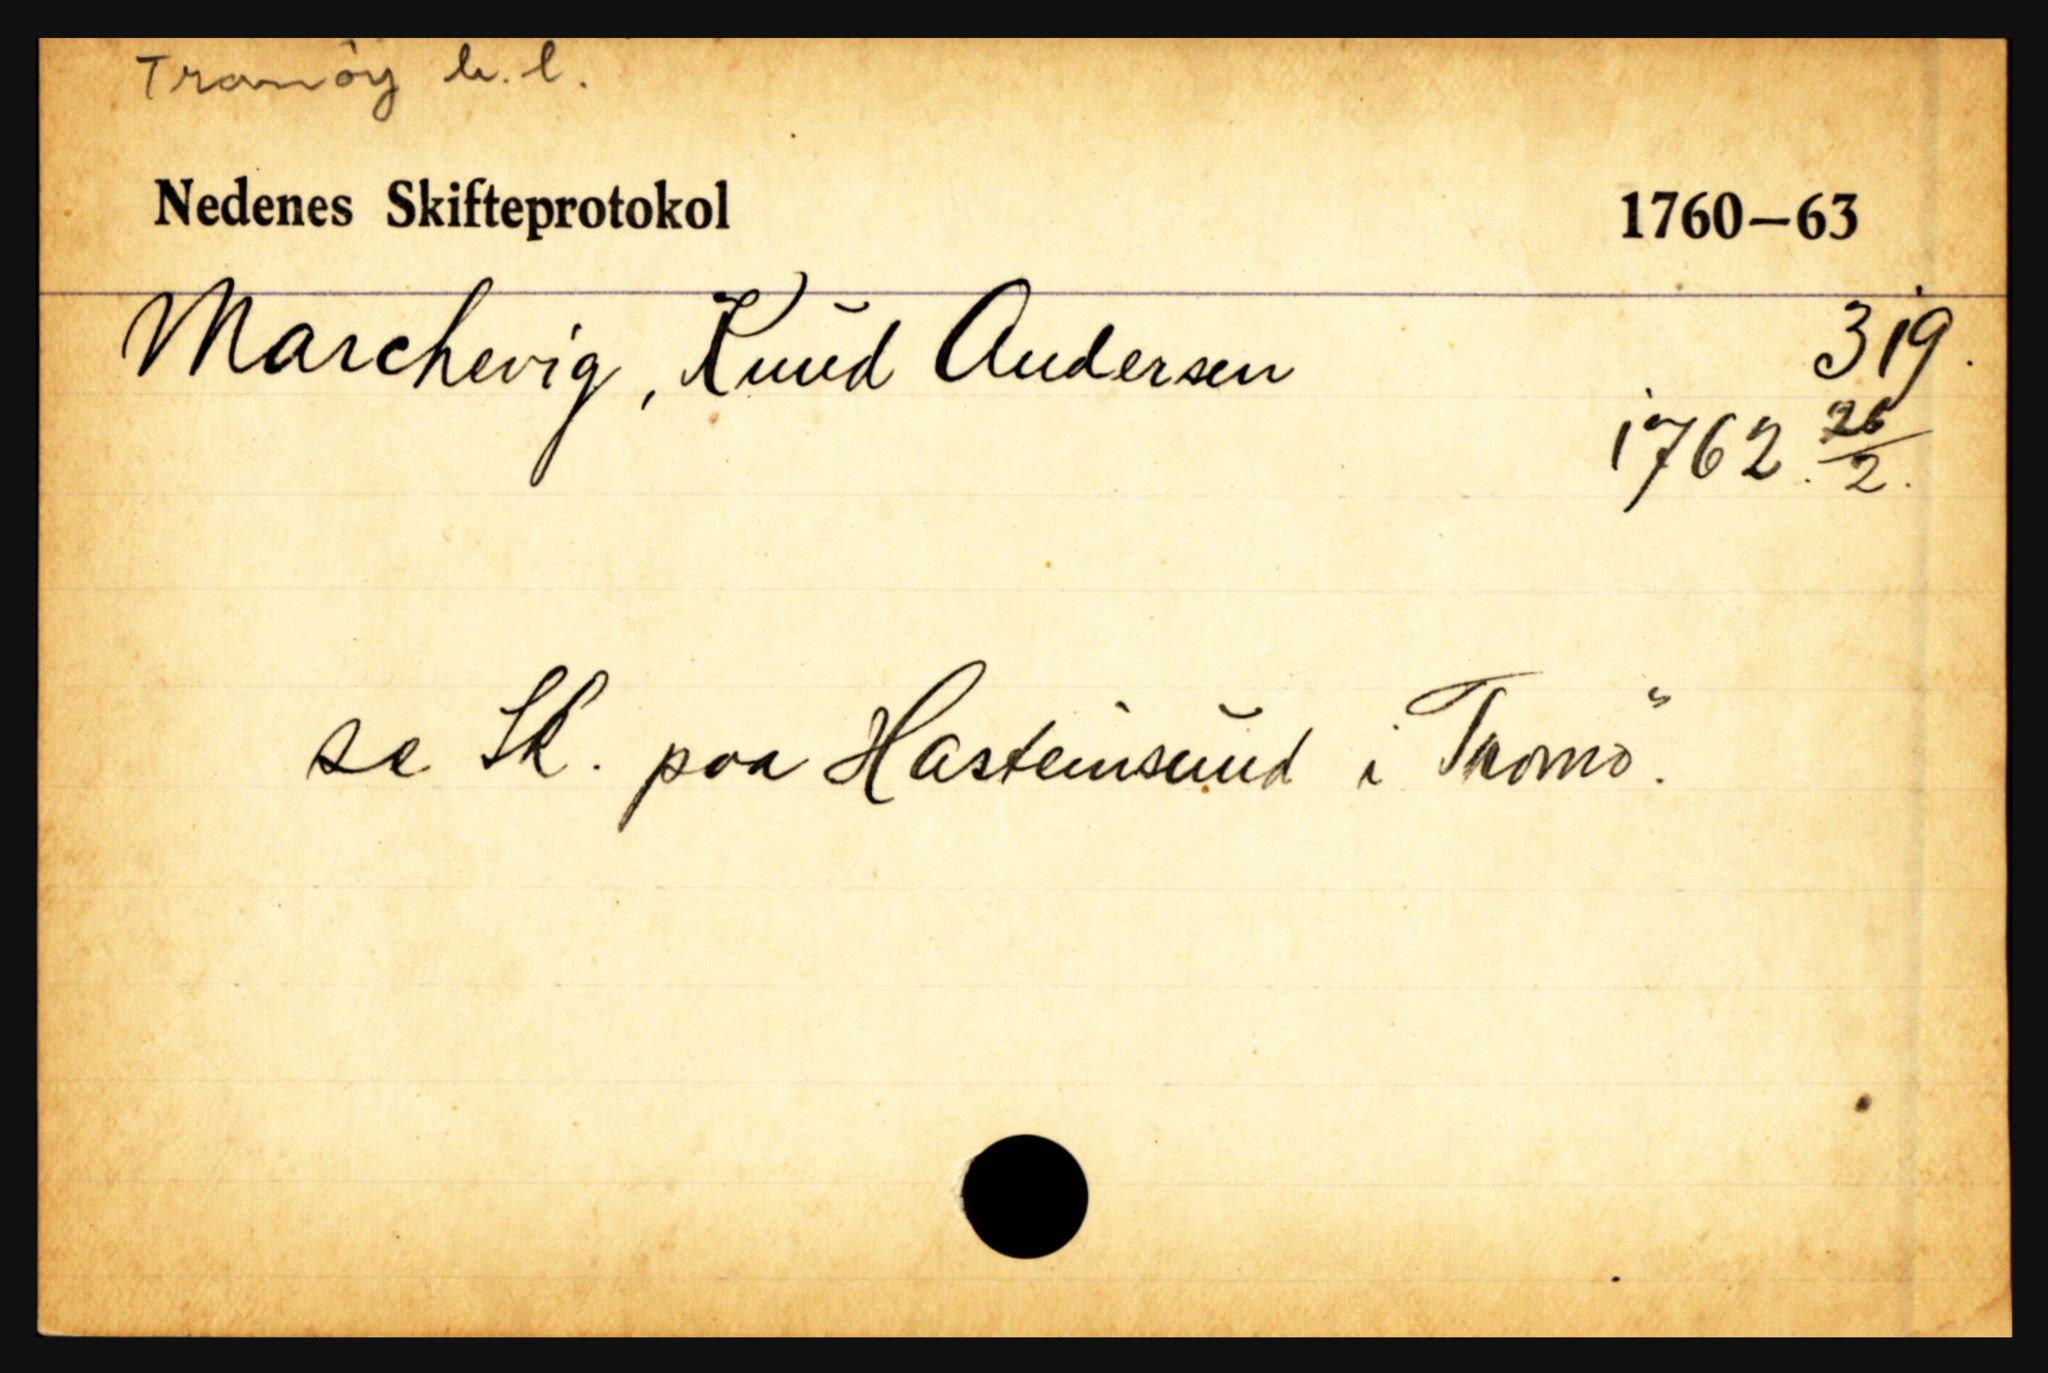 Tranöy h.l.
Nedenes Skifteprotokol 1760–63
Marchevig, Knud Andersen 319.
1762. 26/2.
se Sk. paa Hasteinsund i Tromö.